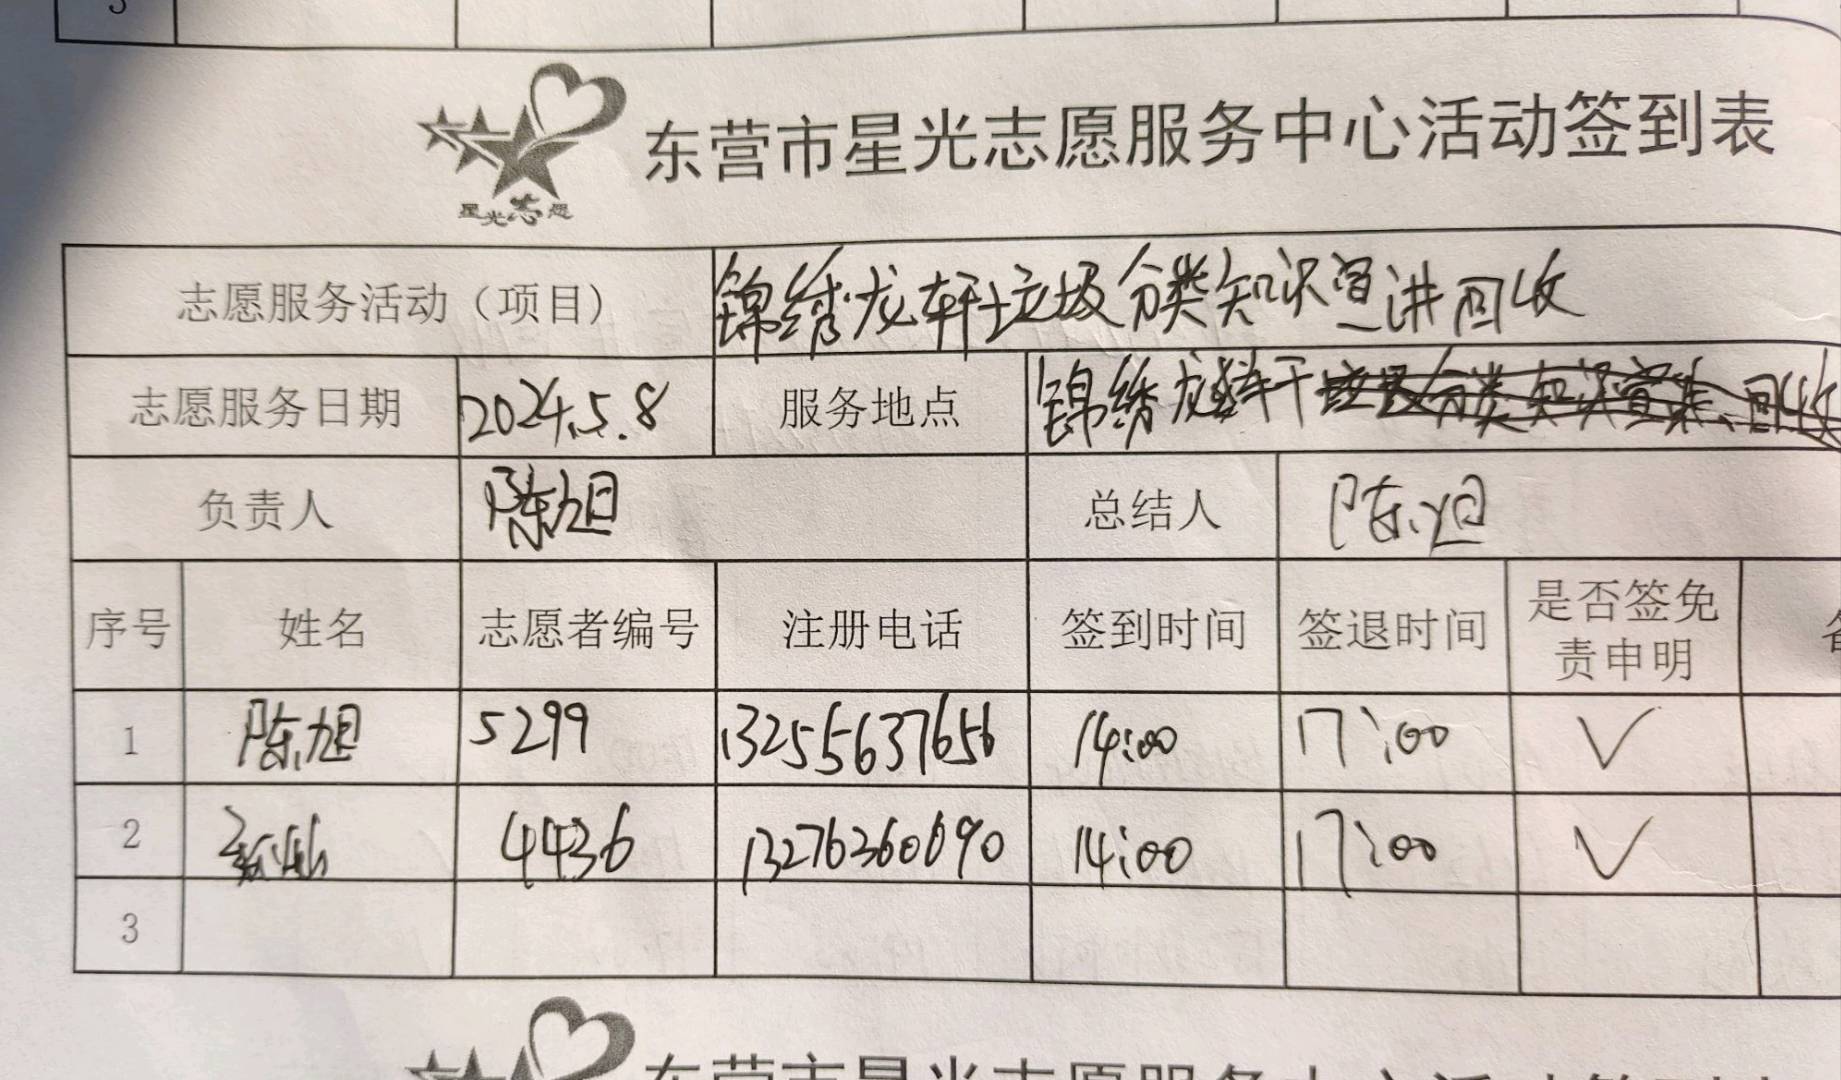 3
星光志愿
东营市星光志愿服务中心活动签到表
志愿服务活动（项目） 锦绣龙轩垃圾分类知识宣讲回收
志愿服务日期 2024.5.8 服务地点 锦绣龙轩
负责人 陈旭 总结人 陈旭
序号 姓名 志愿者编号 注册电话 签到时间 签退时间 是否签免责申明
1 陈旭 5299 13255637656 14:00 17:00 √
2 4436 13276360690 14:00 17:00 √
3
东营市星光志愿服务中心活动签到表